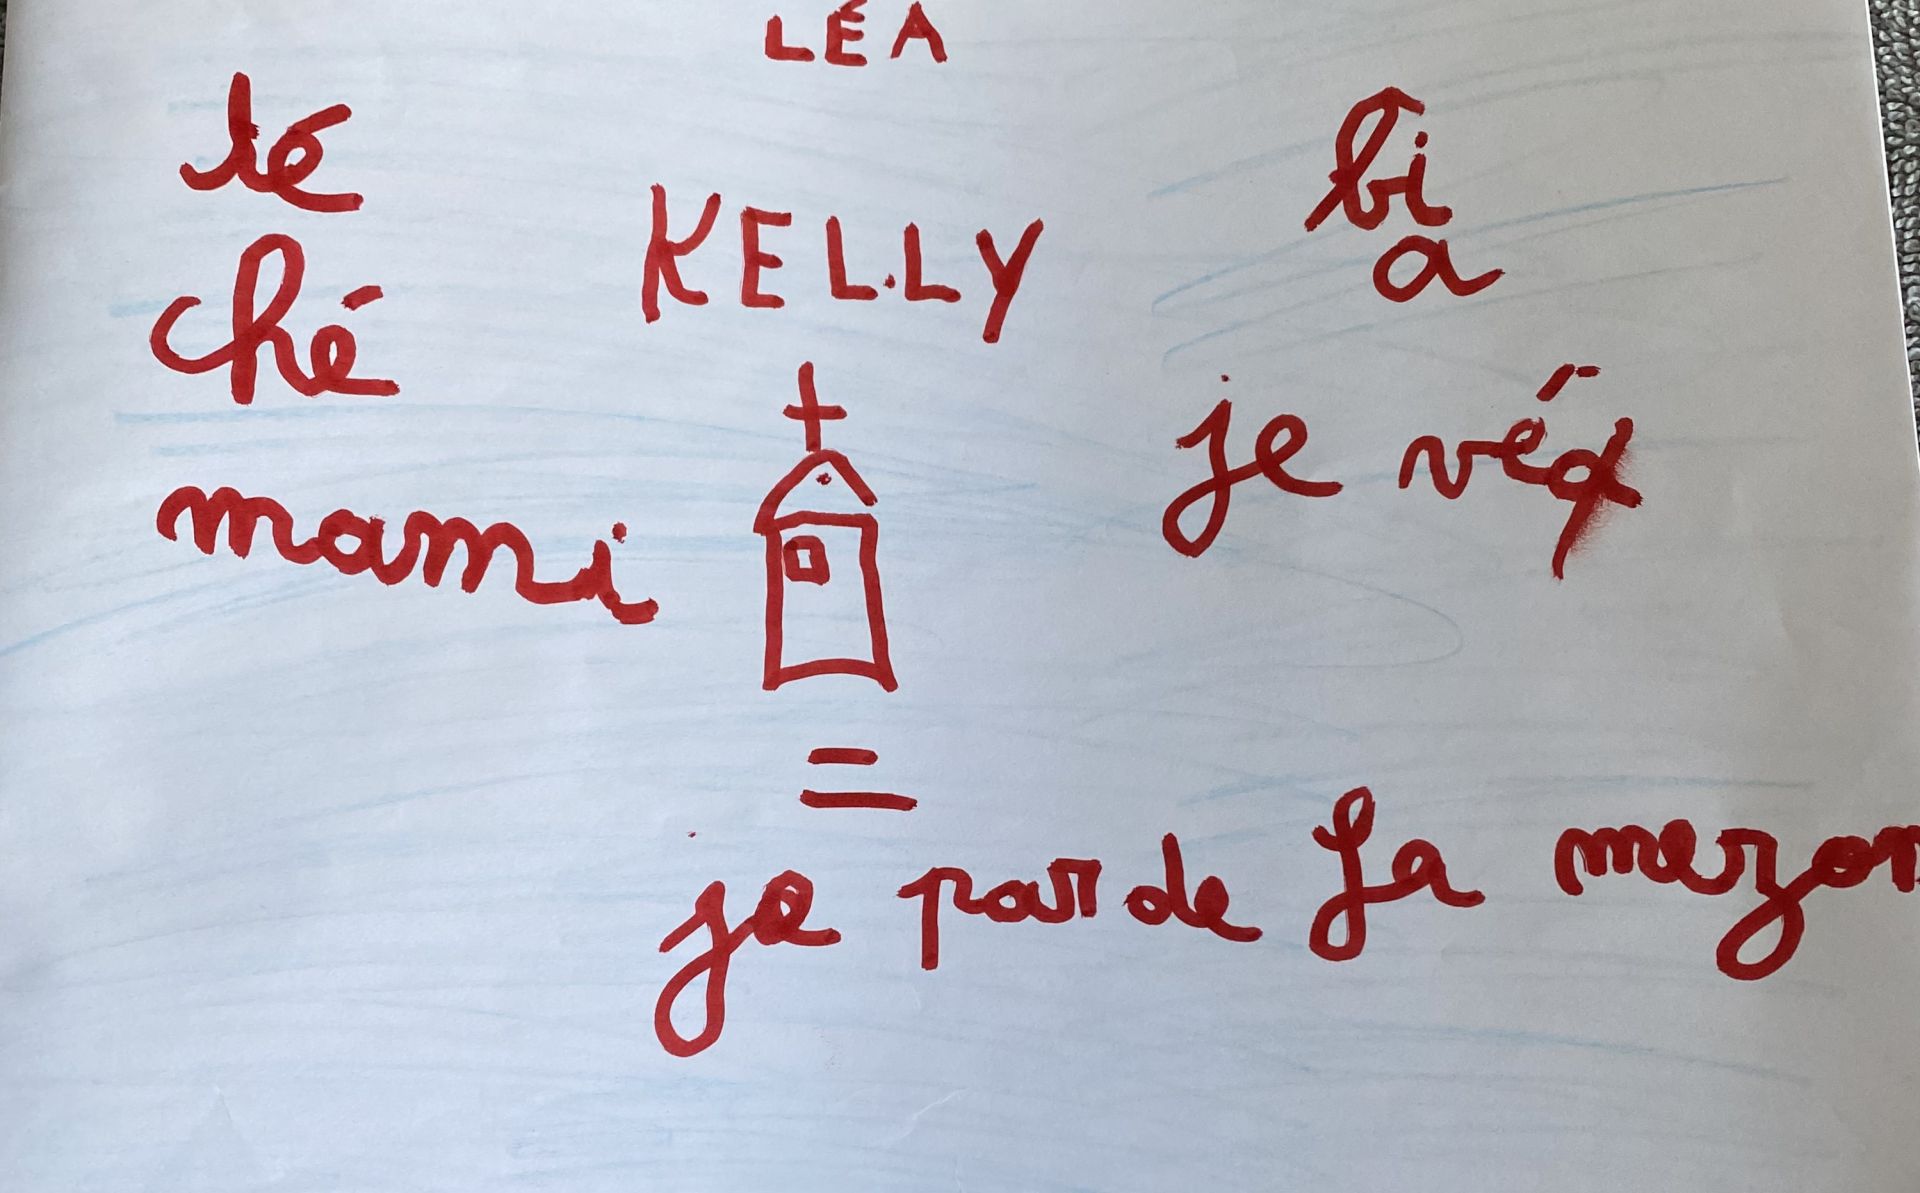 LÉA
té
ché
mami
KELLY
bi
a
je
je parde la mezon